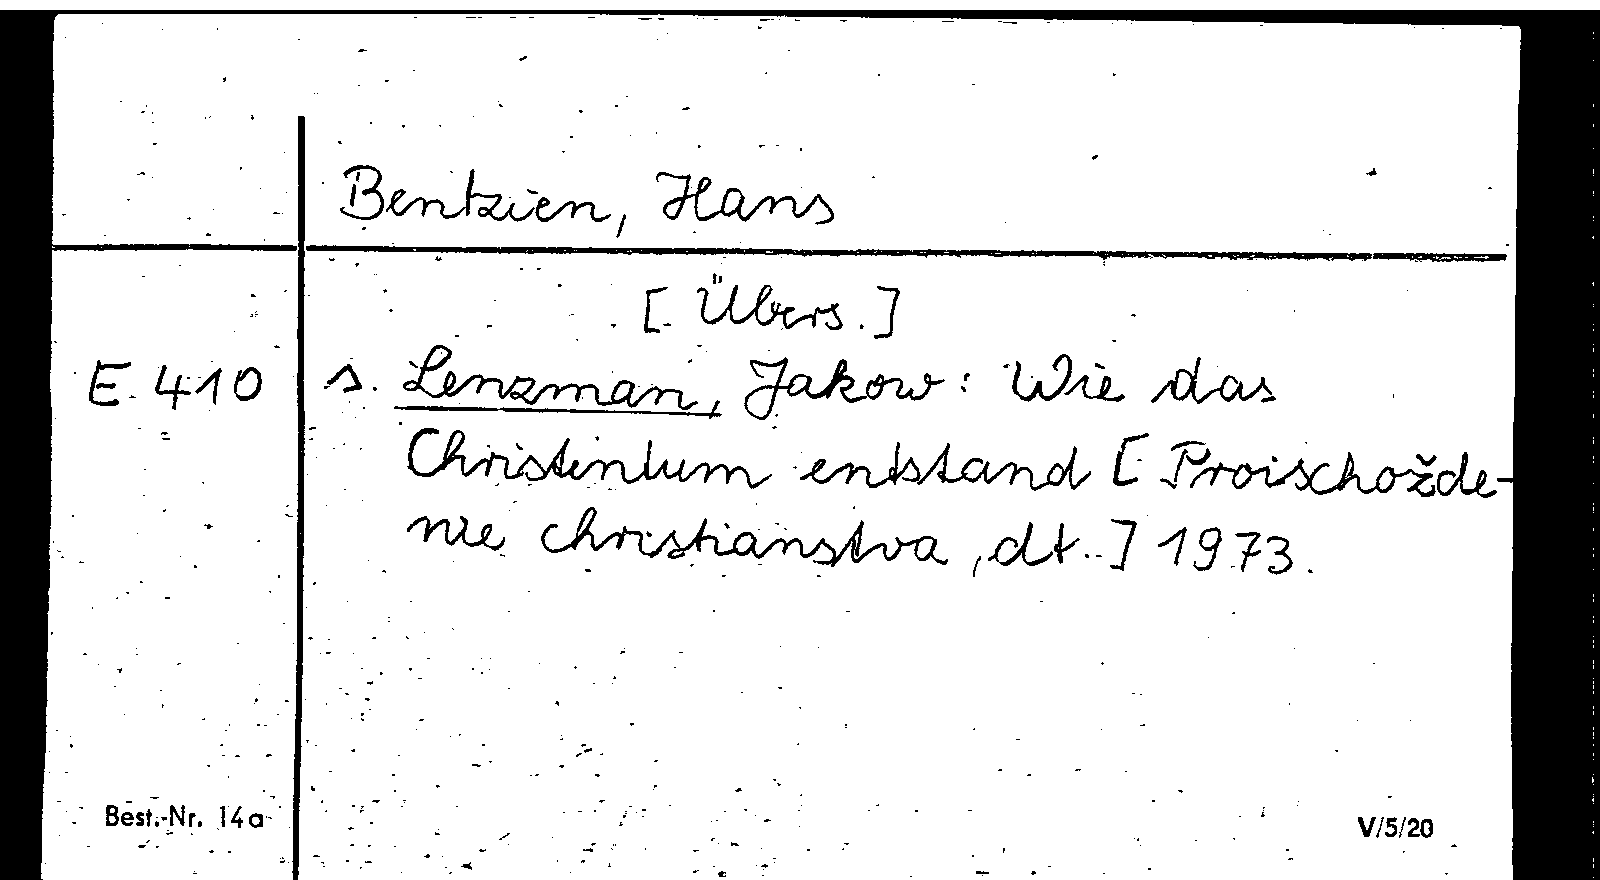 Bentzien, Hans
[Übers.]
E 410 s. Lenzman, Jakow: Wie das
Christentum entstand [Proischožde-
nie christianstva, dt.] 1973.
Best.-Nr. 14a V/5/20